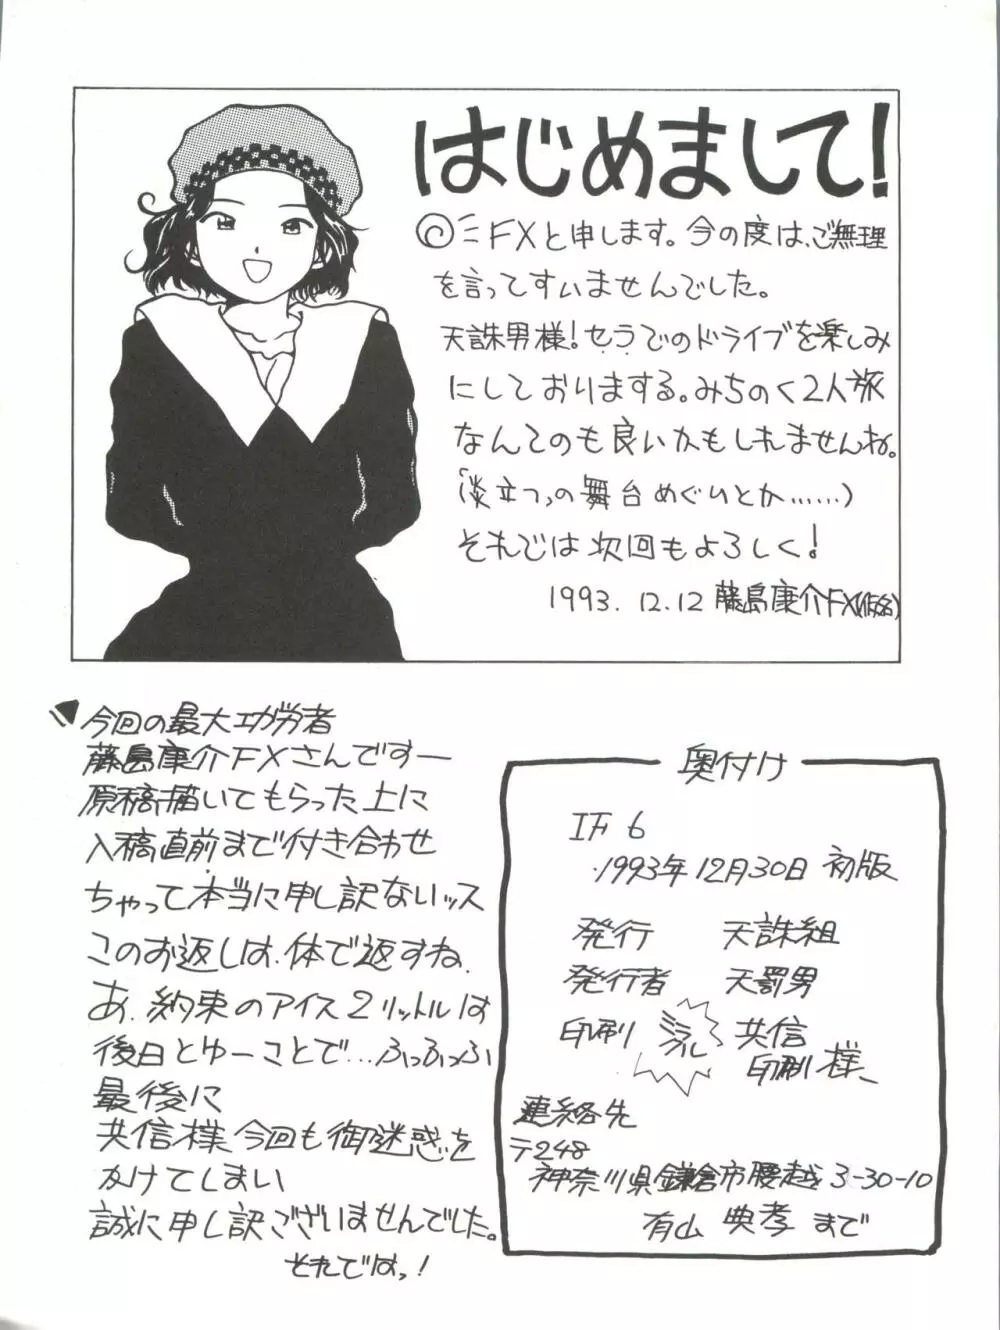 はじめまして!
FXと申します。今の度は、ご無理
を言ってすいませんでした。
天誅男様!セラでのドライブを楽しみ
にしておりまする。みちのく2人旅
なんてのも良いかもしれませんね。
立つの舞台めぐりとか……)
それでは次回もよろしく!
1993.12.12 藤島康介FX(仮名)
今回の最大功労者
藤島康介FXさんですー
原稿描いてもらった上に
入稿直前まで付き合わせ
ちゃって本当に申し訳ないッス
このお返しは、体で返すね、
あ、約束のアイス2リットルは
後日とゆーことで…ふっふっふ
最後に
共信様、今回も御迷惑を
かけてしまい
誠に申し訳ございませんでした。
それではっ!
奥付け
IF 6
1993年12月30日 初版
発行 天誅組
発行者 天罰男
印刷 ミラクル 共信
印刷 様、
連絡先
〒248
神奈川県鎌倉市腰越3-30-10
有山 典孝 まで